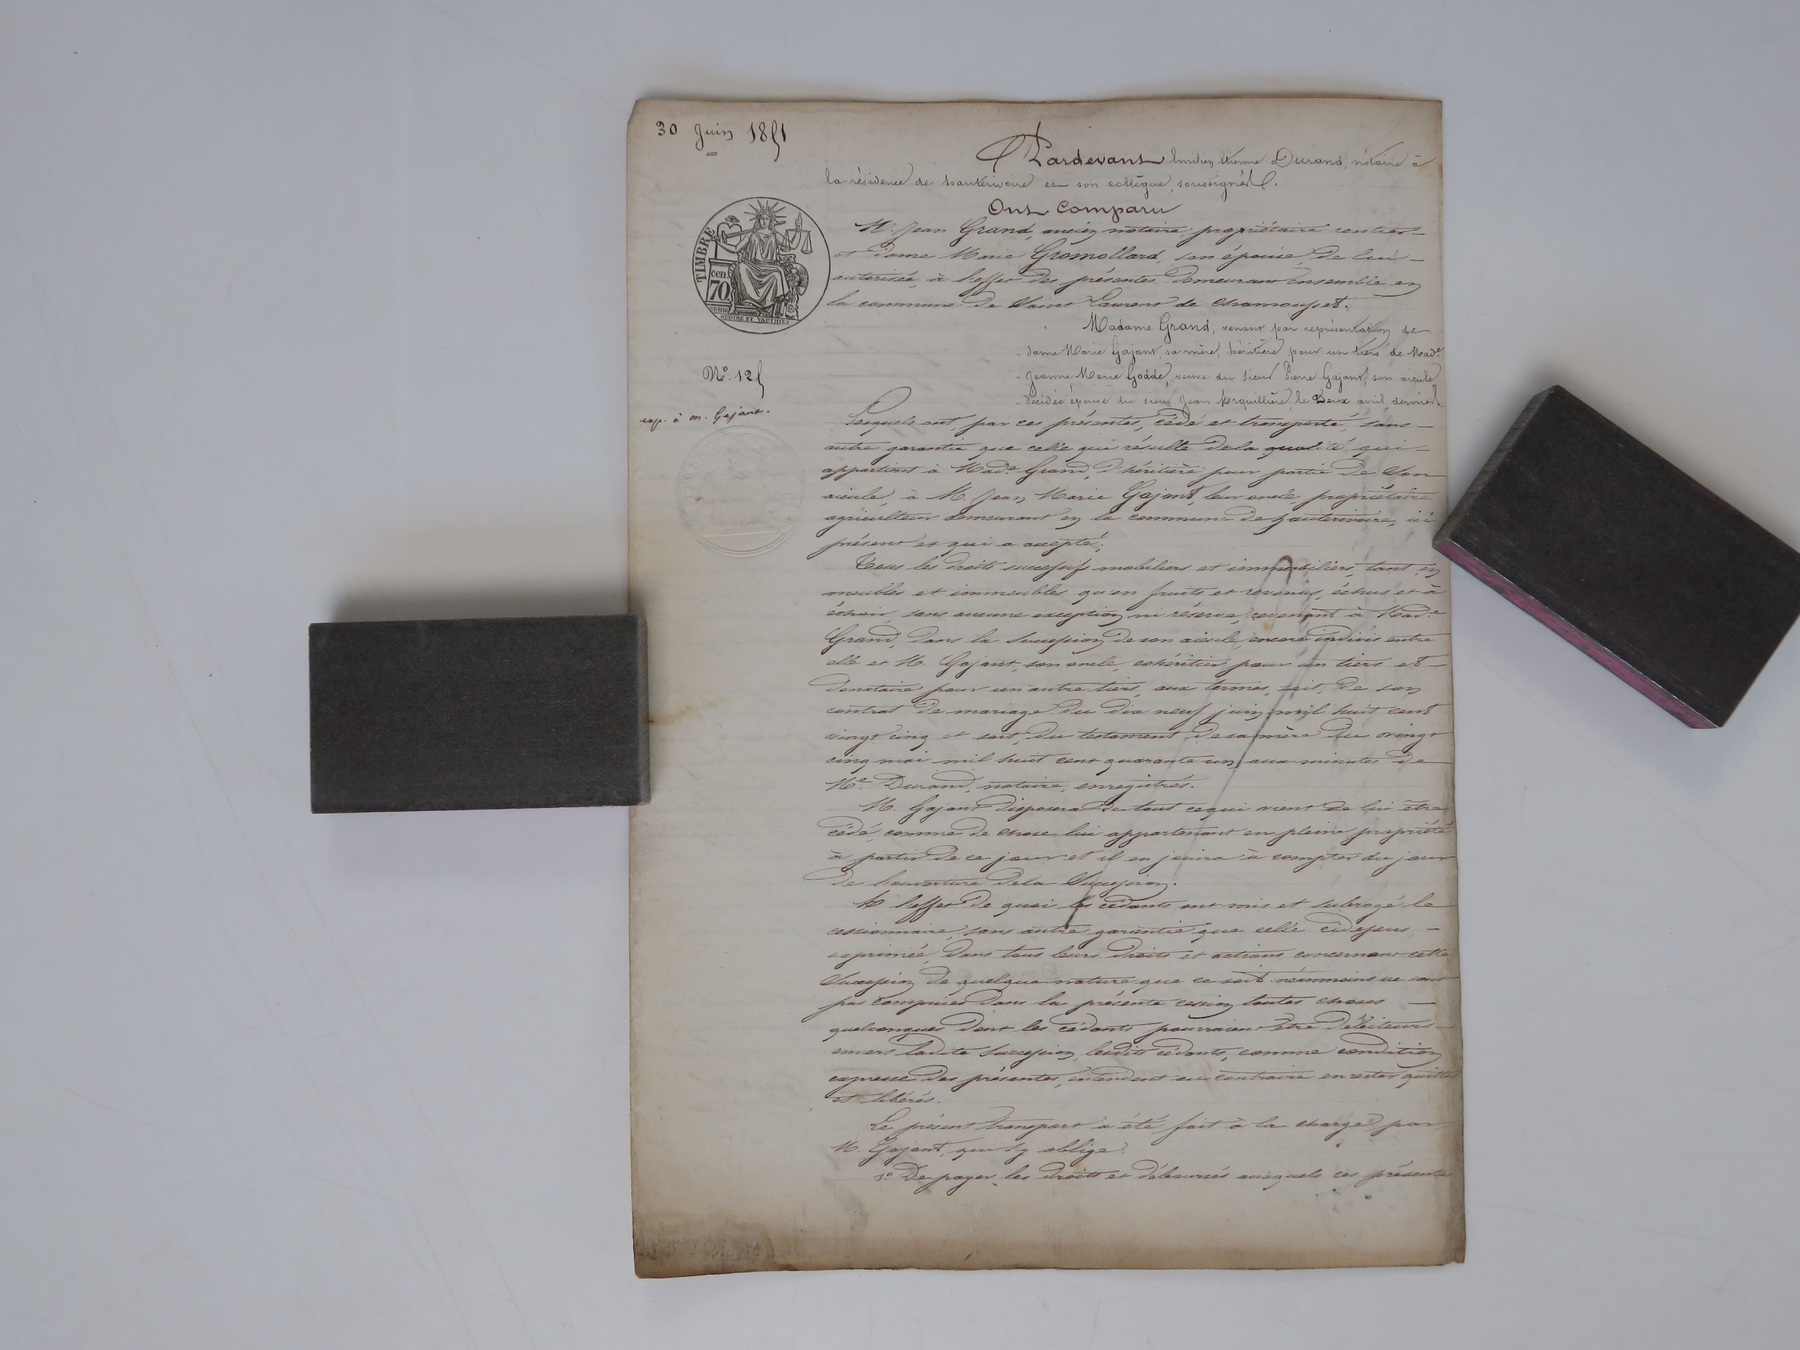 30 Juin 1851
Pardevant Emilien Etienne Durand, notaire à
la résidence de hauterivoire et son collègue, soussignés.
Ont Comparu
TIMBRE
cen
70
M. Jean Grand, ancien notaire, propriétaire rentier
et dame Marie Gromollard, son épouse, de lui
autorisée, à l'effet des présentes, demeurant ensemble en
la commune de Saint Laurent de Chamousset.
Madame Grand, venant par représentation de
dame Marie Gajant, sa mère, héritière pour un tiers de Made
Jeanne Marie Godde, veuve du sieur Pierre Gajant, son aïeule
décédée épouse du sieur Jean Arquillière, le Deux avril dernier.
N°. 125
exp. à m. Gajant.
Lesquels ont, par ces présentes, cédé et transporté, sans
autre garantie que celle qui résulte de la qualité qui
appartient à Made Grand, d'héritière pour partie de Son
aïeule, à M. Jean Marie Gajant, leur oncle, propriétaire
agriculteur demeurant en la commune de hauterivoire, ici
présent et qui a accepté;
Tous les droits successifs mobiliers et immobiliers, tant en
meubles et immeubles qu'en fruits et revenus, échus et à
échoir, sans aucune exception ni réserve, revenant à Made
Grand, dans la succession de son aïeule, encore indivis entre
elle et M. Gajant, son oncle, cohéritier pour un tiers et
donataire pour un autre tiers, aux termes, soit, de son
contrat de mariage du dix neuf juin mil huit cent
vingt cinq et soit, du testament de sa mère du vingt
cinq mai mil huit cent quarante un, aux minutes de
Me Durand, notaire, enregistrés.
M. Gajant disposera de tout ce qui vient de lui être
cédé, comme de chose lui appartenant en pleine propriété
à partir de ce jour et il en jouira à compter du jour
de l'ouverture de la Succession.
A l'effet de quoi les cédants ont mis et subrogé le
cessionnaire, sans autre garantie que celle cidessus
exprimée, dans tous leurs droits et actions concernant cette
Succession de quelque nature que ce soit. néanmoins ne sont
pas comprises dans la présente cession toutes choses
quelconques dont les cédants pourraient être débiteurs
envers ladite succession, lesdits cédants, comme condition
expresse des présentes, entendent au contraire en rester quittes
et libérés.
Le présent transport a été fait à la charge par
M. Gajant, qui s'y oblige:
1° De payer les droits et déboursés auxquels ces présentes